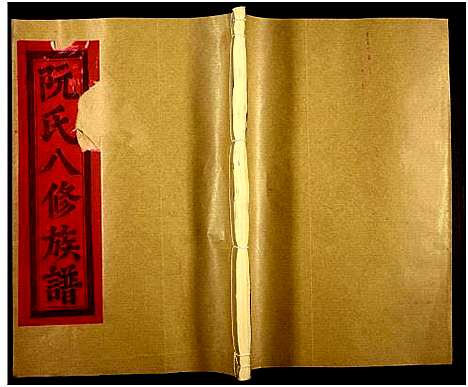 阮氏八修族譜